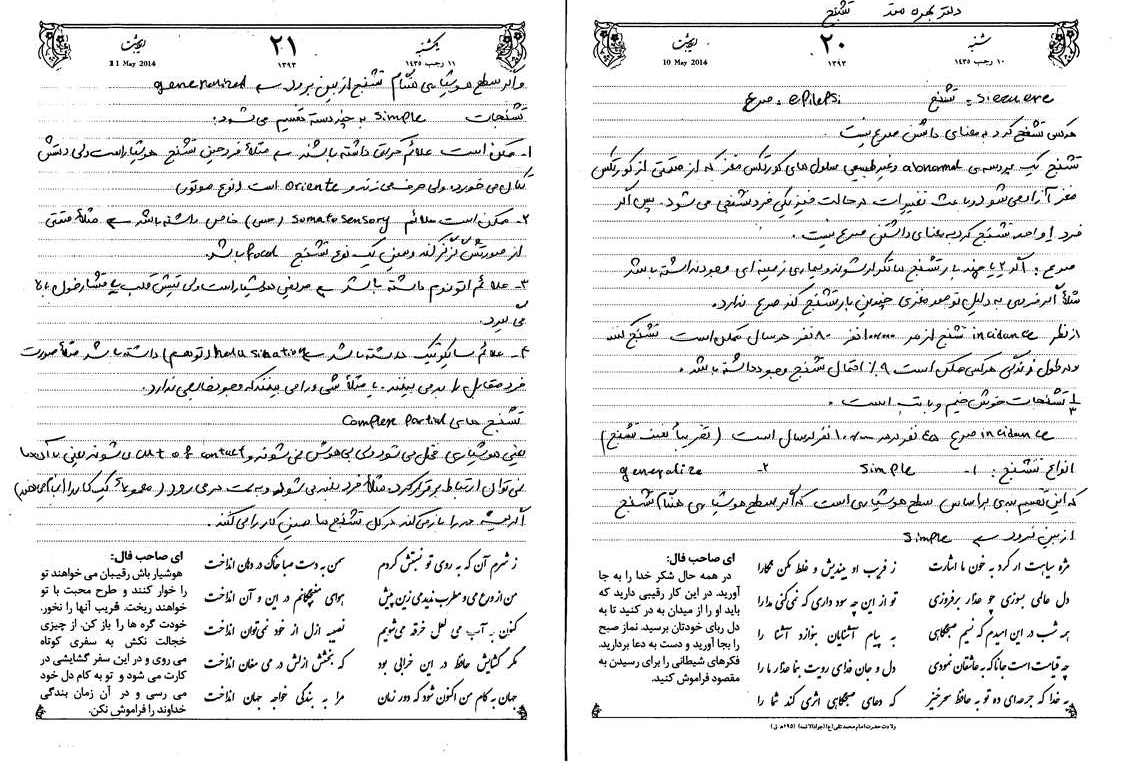 دکتر بهره مند تشنج
شنبه
۲۰
اردیبهشت
۱۰ رجب ۱۴۳۵
۱۳۹۳
10 May 2014
Siezuere = تشنج epilepsi = صرع
هرکس تشنج کرد به معنای داشتن صرع نیست.
تشنج یک بررسی abnormal و غیرطبیعی سلول های کورتکس مغز که از قسمتی از کورتکس
مغز آزاد می شود و باعث تغییرات در حالت فیزیکی فرد تشنجی می شود. پس اگر
فرد ا واحد تشنج کرد به معنای داشتن صرع نیست.
صرع: اگر ۲ یا چند بار تشنج ها تکرار شوند و بیماری زمینه ای وجود نداشته باشد
مثلاً اگر فردی به دلیل تومور مغزی چندین بار تشنج کند صرع ندارد.
از نظر incidance تشنج از هر ۱۰۰۰۰۰ نفر ۸۰ نفر در سال ممکن است تشنج کنند
و در طول زندگی هر کس ممکن است ۹٪ احتمال تشنج وجود داشته باشد.
۱/۳ تشنجات خوش خیم و با تب است.
incidance صرع ۴۵ نفر در هر ۱۰۰۰۰۰ نفر در سال است (تقریباً نصف تشنج)
انواع تشنج: ۱- Simple ۲- generalize
که این تقسیم بندی براساس سطح هوشیاری است که اگر سطح هوشیاری هنگام تشنج
از بین نرود ← Simple
مژه سیاهت ار کرد به خون ما اشارت ز فریب او بیندیش و غلط مکن نگارا
دل عالمی بسوزی چو عذار برفروزی تو از این چه سود داری که نمی کنی مدارا
همه شب در این امیدم که نسیم صبحگاهی به پیام آشنایان بنوازد آشنا را
چه قیامت است جانا که به عاشقان نمودی دل و جان فدای رویت بنما عذار ما را
به خدا که جرعه ای ده تو به حافظ سحرخیز که دعای صبحگاهی اثری کند شما را
ای صاحب فال:
در همه حال شکر خدا را به جا
آورید. در این کار رقیبی دارید که
باید او را از میدان به در کنید تا به
دل ربای خودتان برسید. نماز صبح
را بجا آورید و دست به دعا بردارید.
فکرهای شیطانی را برای رسیدن به
مقصود فراموش کنید.
ولادت حضرت امام محمد تقی (ع) (جوادالائمه) (۱۹۵ ه.ق)
یکشنبه
۲۱
اردیبهشت
۱۱ رجب ۱۴۳۵
۱۳۹۳
11 May 2014
و اگر سطح هوشیاری هنگام تشنج از بین برود ← generalized
تشنجات Simple به چند دسته تقسیم می شود:
۱- ممکن است علائم حرکتی داشته باشند ← مثلاً فرد حین تشنج هوشیار است ولی دستش
تکان می خورد، ولی حرف می زند و Oriente است (نوع موتور)
۲- ممکن است علائم Somatosensory (حسی) خاص داشته باشد ← مثلاً قسمتی
از صورتش گزگز کند و یعنی یک نوع تشنج focal باشد.
۳- علائم اتونوم داشته باشد ← مریض هوشیار است ولی تپش قلب یا فشار خون بالا
می گیرد.
۴- علائم سایکوتیک داشته باشد ← halusination (توهم) داشته باشد مثلاً صورت
فرد مقابل را بد می بینند. یا مثلاً شی ورا می بینند که وجود خارجی ندارد.
تشنج های Complex Partial
یعنی هوشیاری مختل می شود ولی بی هوش نمی شوند و out of contact می شوند یعنی با آنها
نمی توان ارتباط برقرار کرد. مثلاً فرد بلند می شود و به سمت در می رود (معمولاً یک کار را انجام می دهند)
اگر همیشه در را باز می کند در کل تشنج ها همین کار را می کند.
ز شرم آن که به روی تو نسبتش کردم سمن به دست صبا خاک در دهان انداخت
من از ورع می و مطرب ندیدمی زین پیش هوای مغبچگانم در این و آن انداخت
کنون به آب می لعل خرقه می شویم نصیبه ازل از خود نمی توان انداخت
مگر گشایش حافظ در این خرابی بود که بخشش ازلش در می مغان انداخت
جهان به کام من اکنون شود که دور زمان مرا به بندگی خواجه جهان انداخت
ای صاحب فال:
هوشیار باش رقیبان می خواهند تو
را خوار کنند و طرح محبت با تو
خواهند ریخت. قریب آنها را نخور.
خودت گره ها را باز کن. از چیزی
خجالت نکش به سفری کوتاه
می روی و در این سفر گشایشی در
کارت می شود و تو به کام دل خود
می رسی و در آن زمان بندگی
خداوند را فراموش نکن.